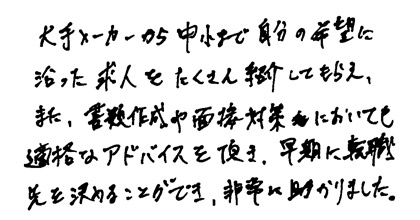 大手メーカーから中小まで自分の希望に
沿った求人をたくさん紹介してもらえ、
また、書類作成や面接対策においても
適格なアドバイスを頂き、早期に転職
先を決めることができ、非常に助かりました。